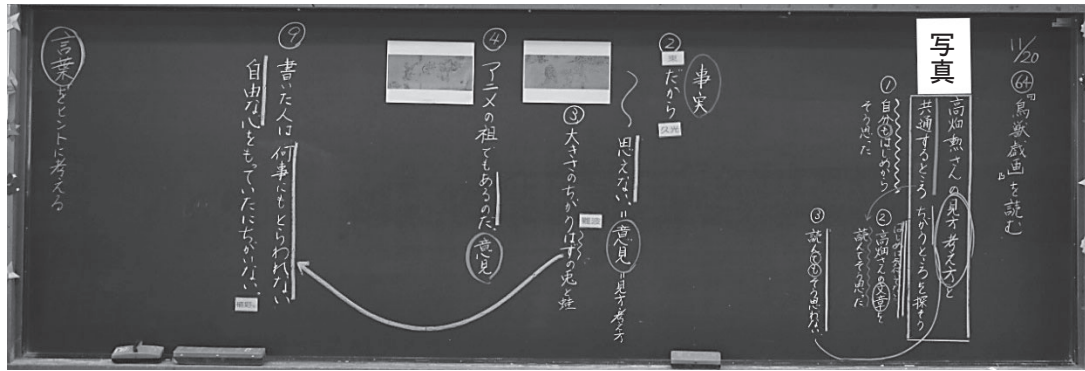 11/20
64『鳥獣戯画』を読む
写真
高畑勲さんの見方考え方と
共通するところ ちがうところを探そう
①自分もはじめから
そう思った
②高畑さんの文章を
読んでそう思った
③読んでもそう思わない
事実
②
だから
思えない。=意見=見方考え方
③大きさのちがうはずの兎と蛙
④アニメの祖でもあるのだ。意見
⑨書いた人は何事にもとらわれない
自由な心をもっていたにちがいない。
言葉をヒントに考える